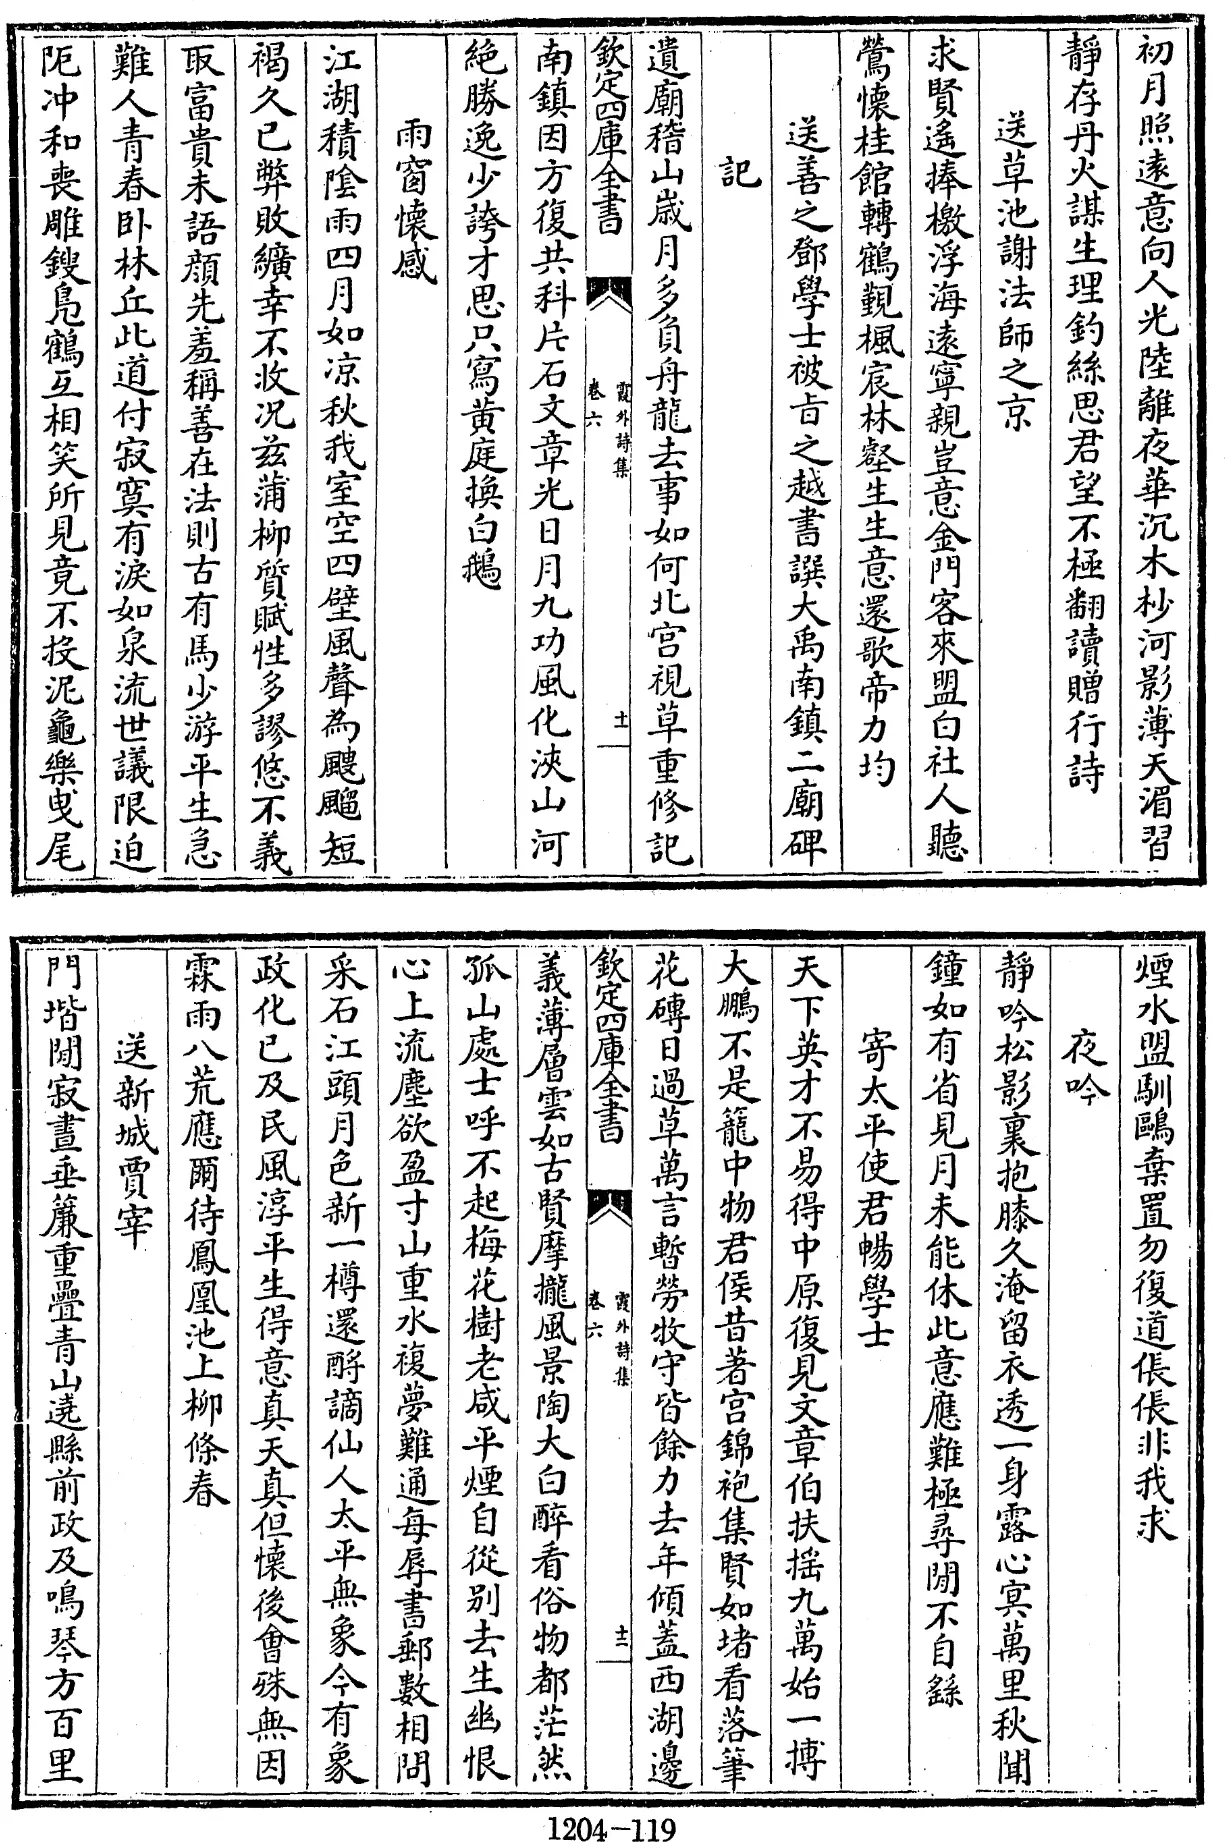 初月照遠意向人光陸離夜華沉木杪河影薄天湄習
靜存丹火謀生理釣絲思君望不極翻讀贈行詩
送草池謝法師之京
求賢遙捧檄浮海遠寧親豈意金門客來盟白社人聽
鶯懷桂館轉鶴覲楓宸林壑生生意還歌帝力均
送善之鄧學士被㫖之越書譔大禹南鎮二廟碑
記
遺廟稽山歲月多負舟龍去事如何北宫視草重修記
欽定四庫全書
霞外詩集
卷六
十一
南鎮因方復共科片石文章光日月九功風化浹山河
絶勝逸少誇才思只寫黄庭換白鵝
雨窗懷感
江湖積陰雨四月如凉秋我室空四壁風聲為颼飀短
褐久已弊敗纊幸不收况兹蒲柳質賦性多謬悠不義
取富貴未語顔先羞稱善在法則古有馬少游平生急
難人青春卧林丘此道付寂寞有淚如泉流世議限迫
阨冲和喪雕鎪鳧鶴互相笑所見竟不投泥龜樂曵尾
煙水盟馴鷗棄置勿復道倀倀非我求
夜吟
靜吟松影裏抱膝久淹留衣透一身露心㝠萬里秋聞
鐘如有省見月未能休此意應難極尋閒不自繇
寄太平使君暢學士
天下英才不易得中原復見文章伯扶揺九萬始一搏
大鵬不是籠中物君侯昔著宫錦袍集賢如堵看落筆
花磚日過草萬言暫勞牧守皆餘力去年傾蓋西湖邊
欽定四庫全書
霞外詩集
卷六
十二
義薄層雲如古賢摩挲風景陶大白醉看俗物都茫然
孤山處士呼不起梅花樹老咸平煙自從别去生幽恨
心上流塵欲盈寸山重水複夢難通每辱書郵數相問
采石江頭月色新一樽還酹謫仙人太平無象今有象
政化已及民風淳平生得意真天真但懷後會殊無因
霖雨八荒應爾待鳳凰池上柳條春
送新城賈宰
門堦閒寂晝垂簾重疊青山遶縣前政及鳴琴方百里
1204-119